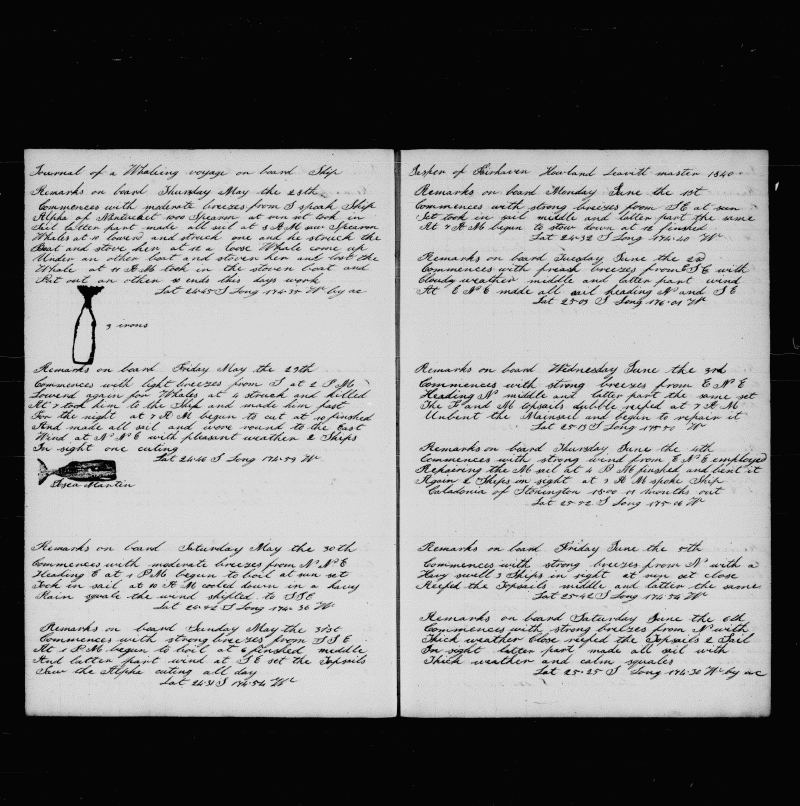 Journal of a Whaleing voyage on board Ship
Remarks on board Thursday May the 28th
Commences with moderate breezes from S speak Ship
Alpha of Nantucket 1000 Sparm at sun set took in
Sail latter part made all sail at 8 A M saw Sparm
Whales at 10 lowerd and struck one and he struck the
Boat and stove her at 11 a loose Whale come up
Under an other boat and stoven her and lost the
Whale at 11 A M took in the stoven boat and
Put out an other so ends this days work
Lat 24·45 S Long 174·35 W by ac
3 irons
Remarks on board Friday May the 29th
Commences with light breezes from S at 2 P M
Lowerd again for Whales at 4 struck and killed
At 7 took him to the Ship and made him fast
For the night at 7 A M begun to cut at 10 finshed
And made all sail and wore round to the East
Wind at N N E with pleasant weather 2 Ships
In sight one cuting
Lat 24·46 S Long 174·59 W
Asea Martin
Remarks on board Saturday May the 30th
Commences with moderate breezes from N N E
Heading E at 1 P M begun to boil at sun set
Took in sail at 10 A M cooled down in a heavy
Rain squale the wind shipted to S S E
Lat 24·42 S Long 174·36 W
Remarks on board Sunday May the 31st
Commences with strong breezes from S S E
At 1 P M begun to boil at 6 finshed middle
And latter part wind at S E set the Topsails
Saw the Alpha cuting all day
Lat 24·31 S 174·54 W
Jasper of Fairhaven Howland Leavitt master 1840
Remarks on board Monday June the 1st
Commences with strong breezes from S E at sun
Set took in sail middle and latter part the same
At 7 A M begun to stow down at 12 finshed
Lat 24·38 S Long 174·40 W
Remarks on board Tuesday June the 2d
Commences with freash breezes from E S E with
Cloudy weather middle and latter part wind
At E N E made all sail heading N and S E
Lat 25·03 S Long 176·01 W
Remarks on board Wednesday June the 3rd
Commences with strong breezes from E N E
Heading N middle and latter part the same set
The F and M topsails dubble reefed at 7 A M
Unbent the Mainsail and begun to repair it
Lat 25·13 S Long 175·50 W
Remarks on board Thursday June the 4th
Commences with strong wind from E N E employed
Repairing the M sail at 4 P M finshed and bent it
Again 2 Ships in sight at 9 A M spoke Ship
Caladonia of Stonington 1800 11 months out
Lat 25·52 S Long 175·06 W
Remarks on board Friday June the 5th
Commences with strong breezes from N with a
Havy swell 3 Ships in sight at sun set close
Reefed the Topsails middle and latter the same
Lat 25·42 S Long 174·54 W
Remarks on board Saturday June the 6th
Commences with strong breezes from N with
Thick weather Close reefed the Topsails 2 Sail
In sight latter part made all sail with
Thick weather and calm squales
Lat 25·25 S Long 174·30 W by ac